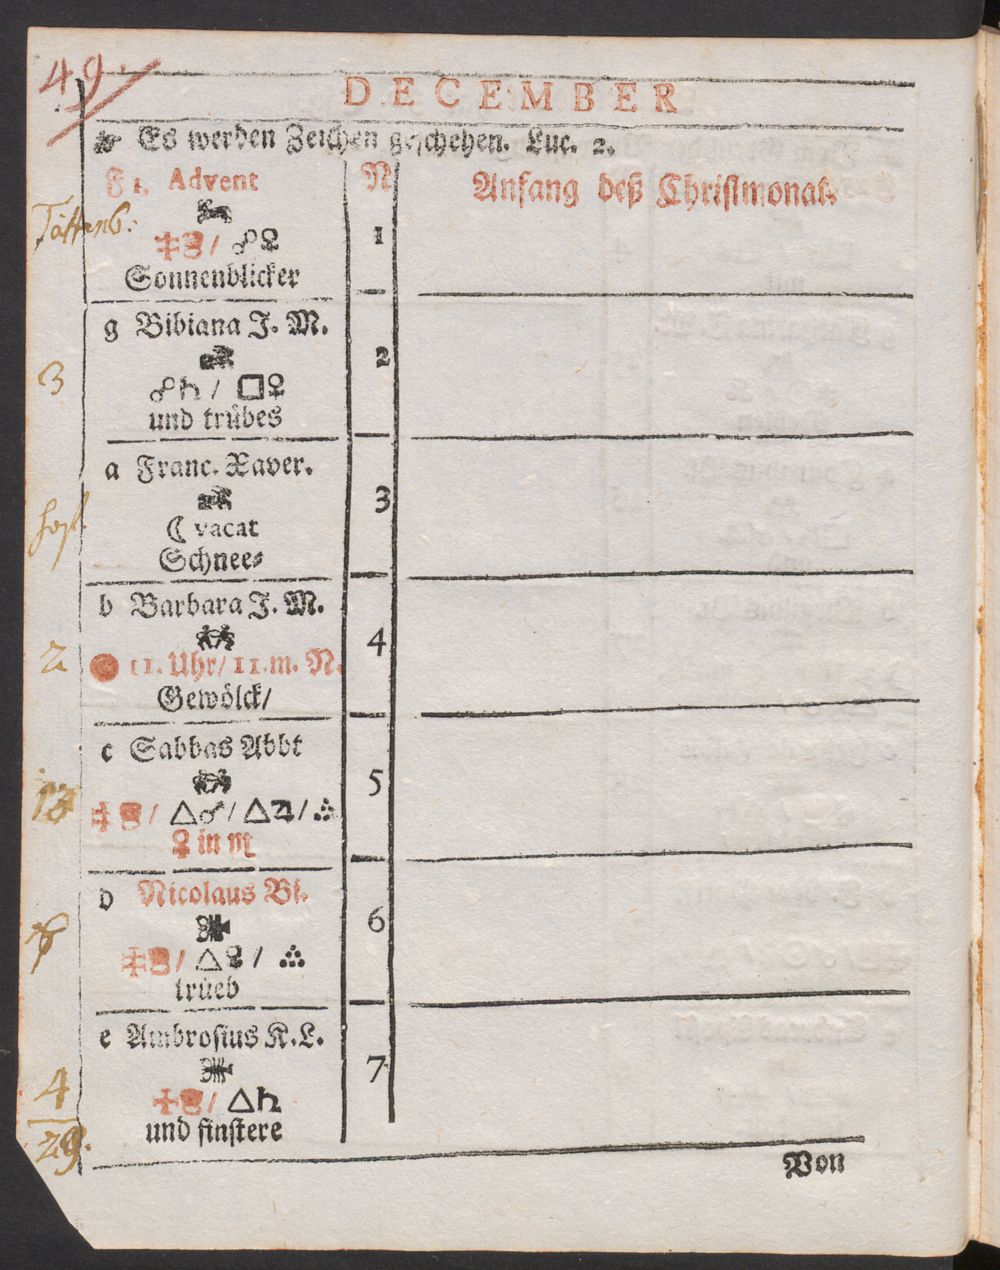 49.
DECEMBER
☞ Es werden Zeichen geschehen. Luc. 2.
F 1. Advent N Anfang deß Christmonat.
1
☍♀
Sonnenblicker
g Bibiana J. M.
2
3
☍♄ / □♀
und trůbes
a Franc. Xaver.
3
☾ vacat
Schnee⸗
b Barbara J. M.
4
2
11. Uhr/ 11. m. N.
Gewölck/
c Sabbas Abbt
5
/ △♂/ △♃/ ∴
♀ in ♏
d Nicolaus Bi.
6
/ △♀ / ∴
trüeb
e Ambrosius K. L.
7
4
/ △♄
und finstere
29.
Von